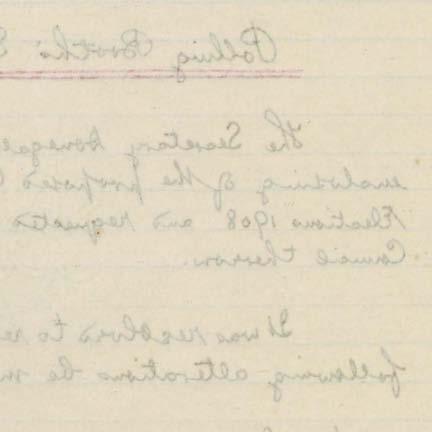 Polling Booths S
The Secretary
of the proposed
Elections 1908 and requested
Council thereon.
It was resolved to re
following alterations be m